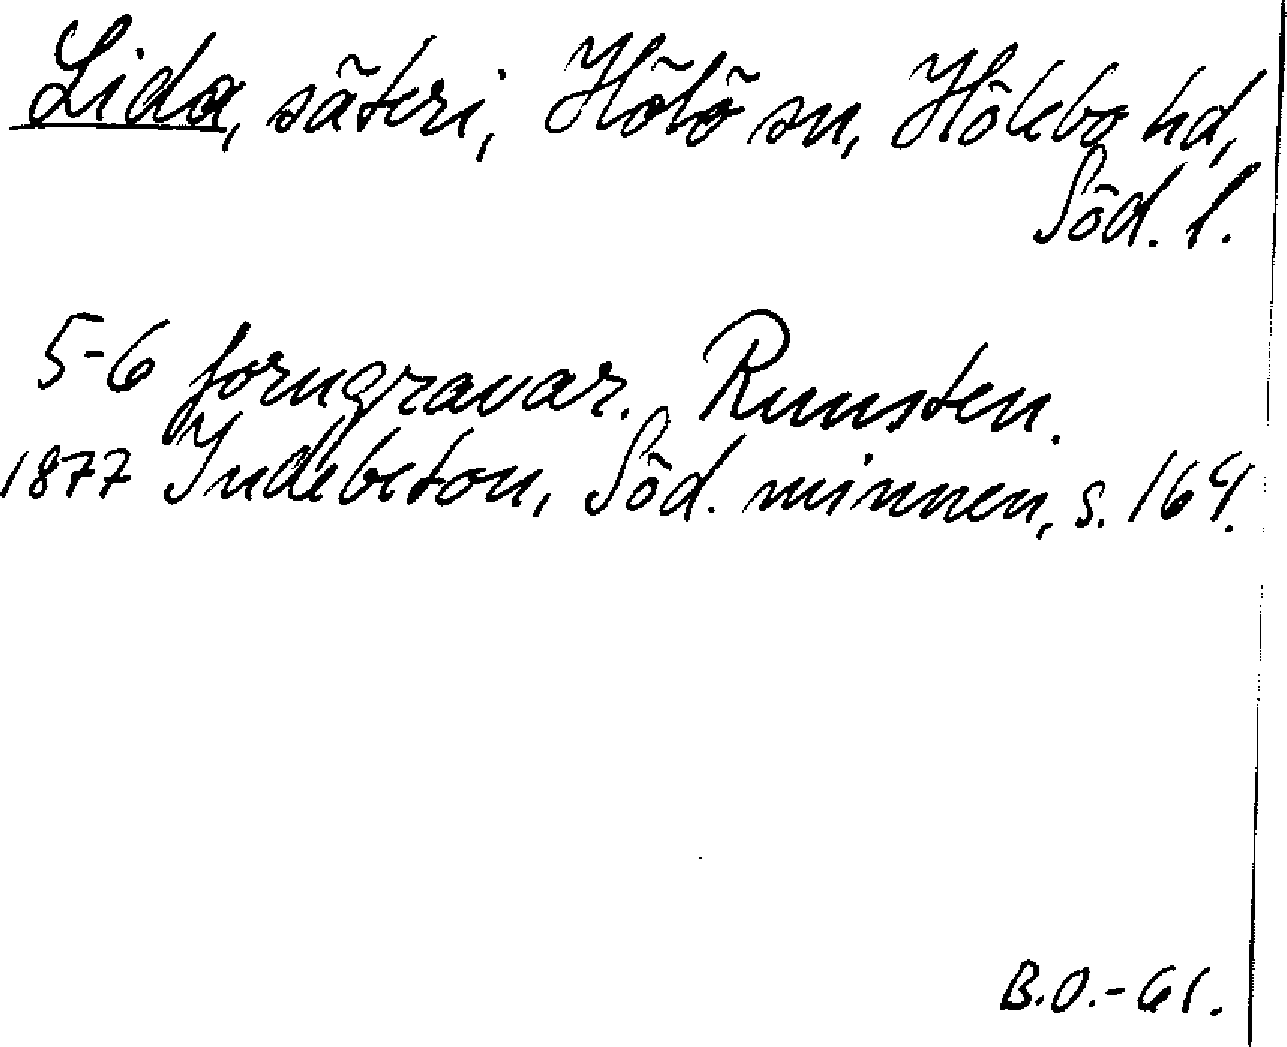 Lida, säteri, Hölö sn, Hölebo hd,
Söd. l.
5-6 forngravar. Runsten.
1877 Indebetou, Söd. minnen, s. 164.
B.O.-61.